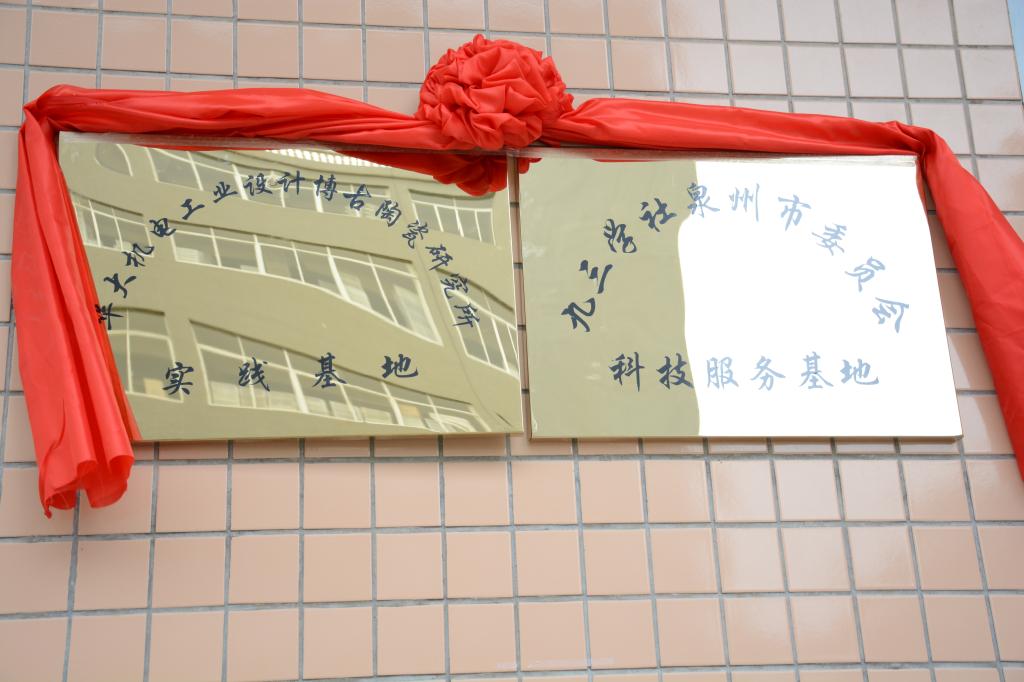 华大机电工业设计博古陶瓷研究所
实践基地
九三学社泉州市委员会
科技服务基地